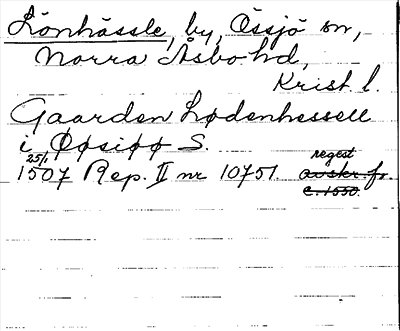 Lönhässle, by, Össjö sn,
Norra Åsbo hd,
Krist. l.
Gaarden Lødenhessell
i Øøsiøø S.
25/1 1507 Rep. II nr 10751. regest avskr. fr.
c. 1550.